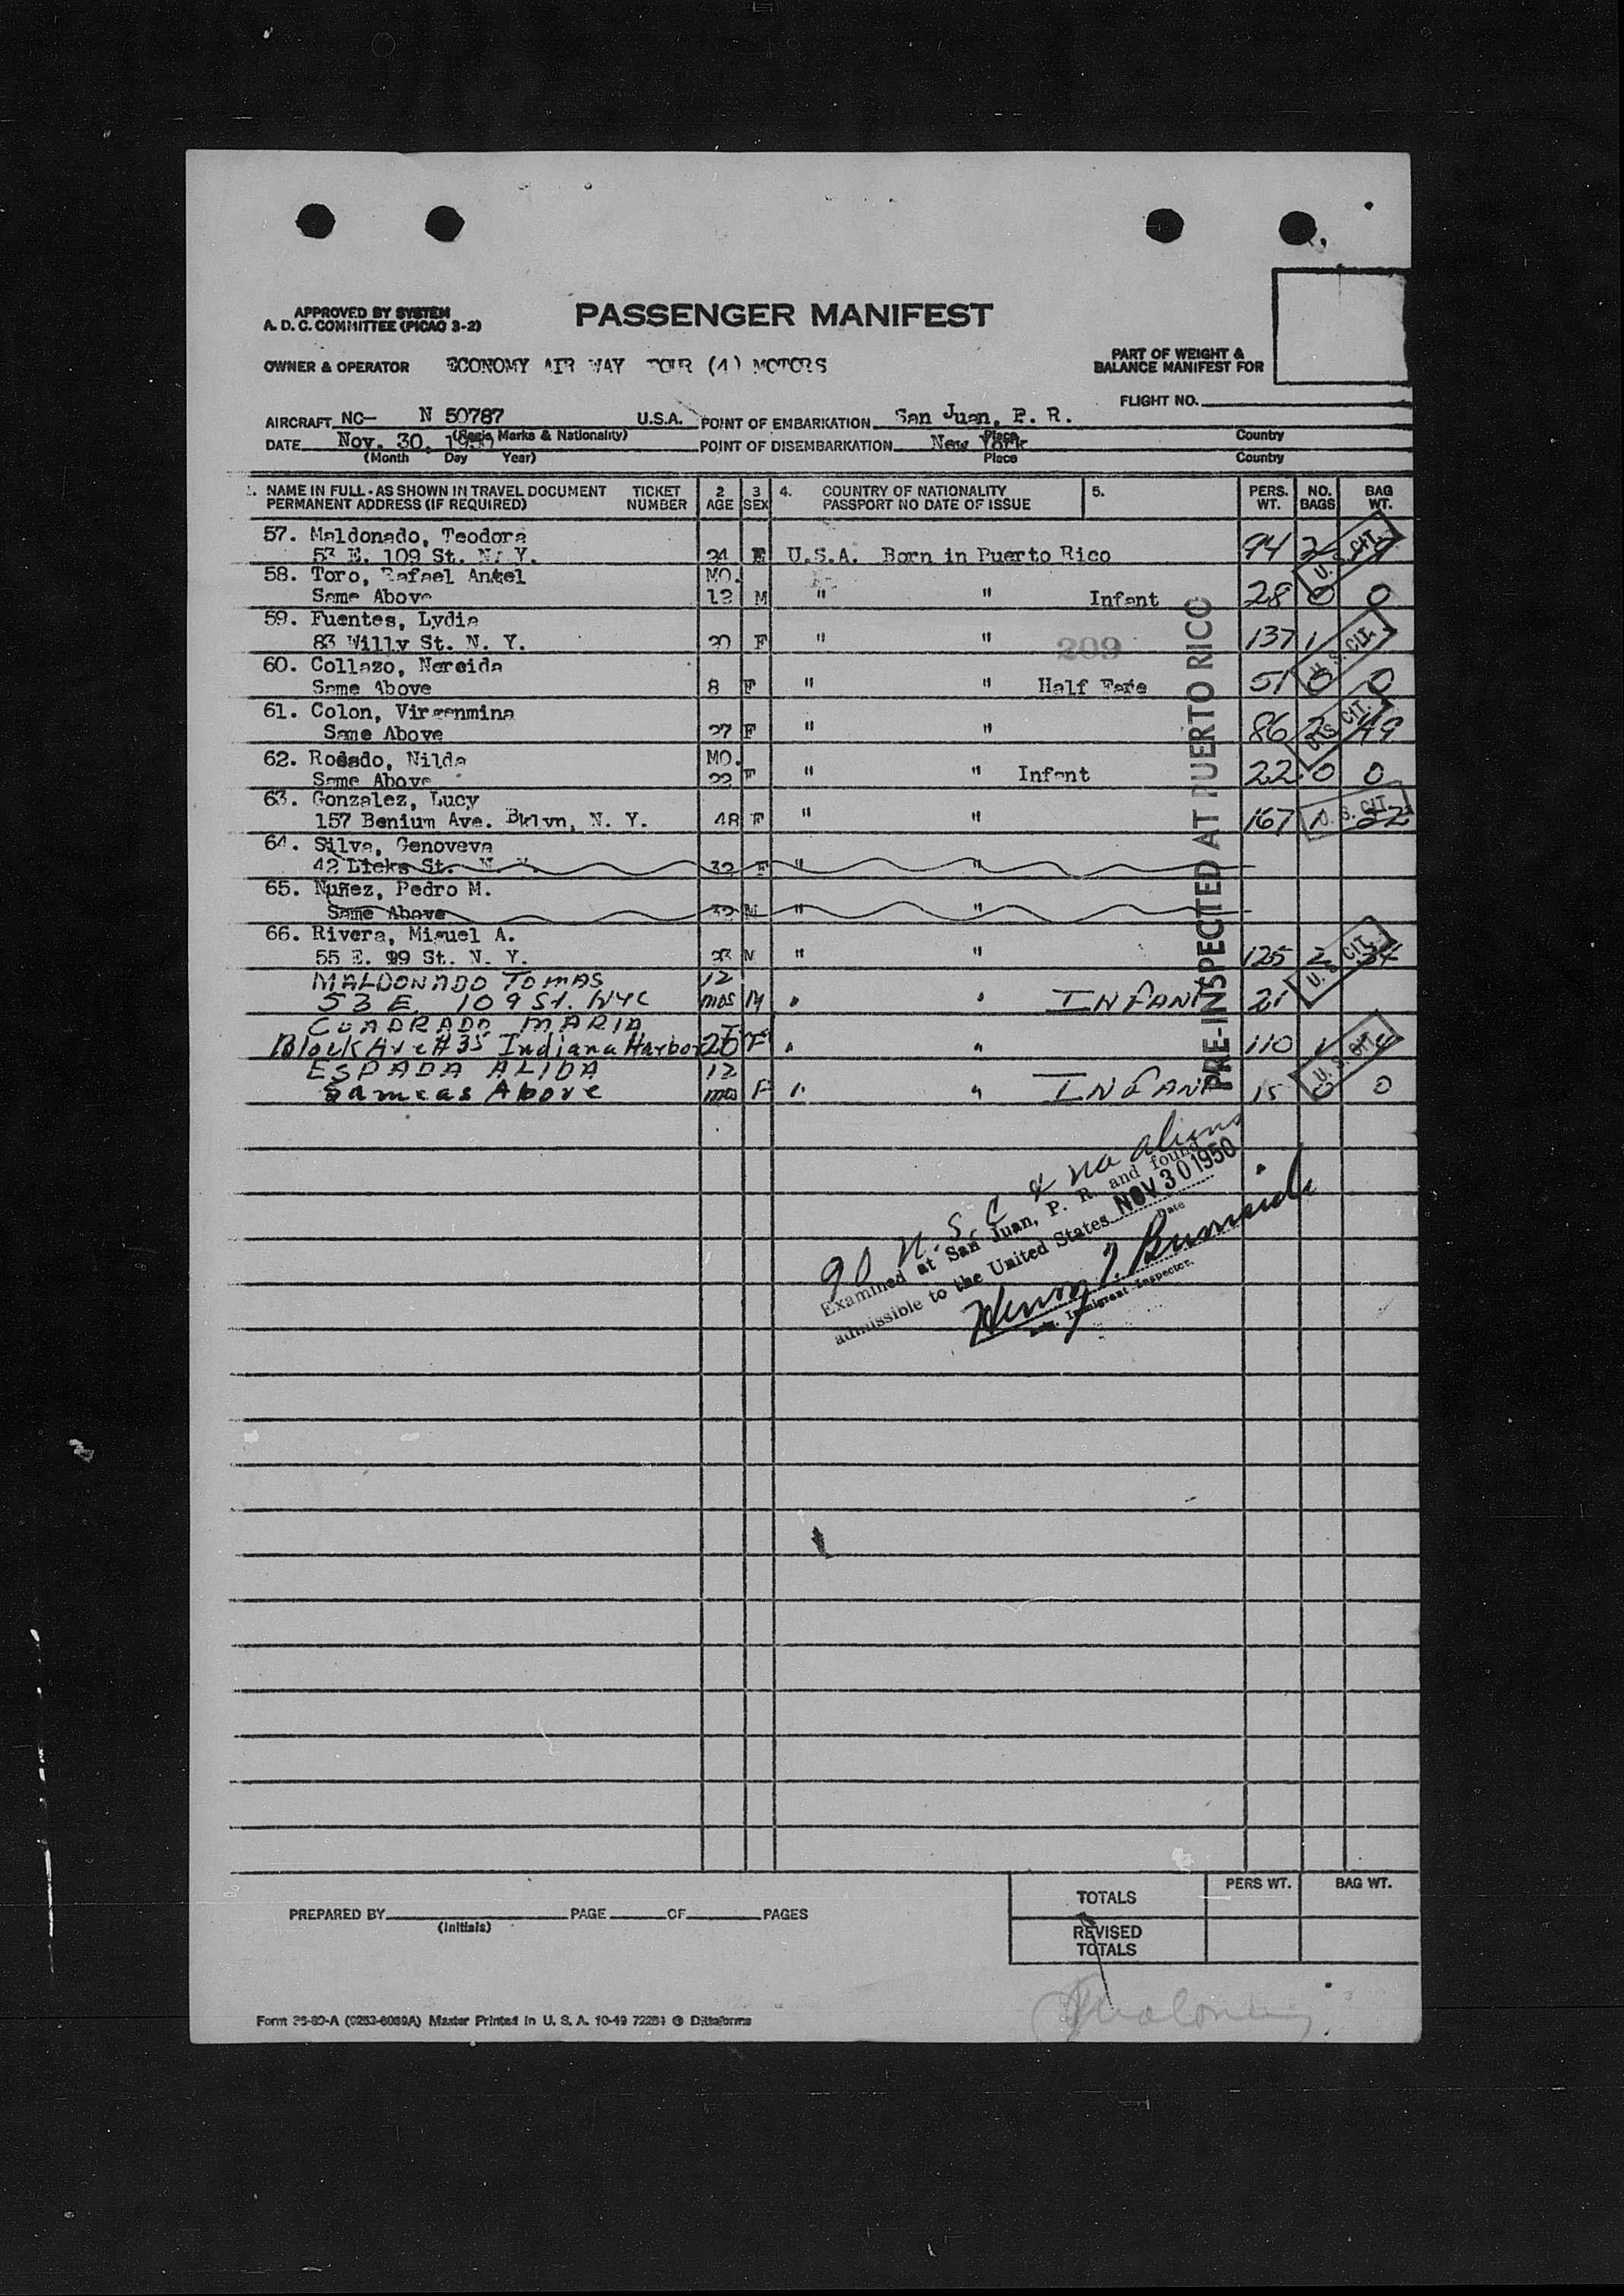 APPROVED BY SYSTEM
A. D. C. COMMITTEE (PICAO 3-2)
PASSENGER MANIFEST
OWNER & OPERATOR ECONOMY AIR WAY FOUR (4) MOTORS
PART OF WEIGHT &
BALANCE MANIFEST FOR
FLIGHT NO.
AIRCRAFT NC- N 50787 U.S.A. POINT OF EMBARKATION San Juan, P. R.
(Regis Marks & Nationality) Place Country
DATE Nov. 30, 1950 POINT OF DISEMBARKATION New York
(Month Day Year) Place Country
1. NAME IN FULL - AS SHOWN IN TRAVEL DOCUMENT TICKET 2 3 4. COUNTRY OF NATIONALITY 5. PERS. NO. BAG
PERMANENT ADDRESS (IF REQUIRED) NUMBER AGE SEX PASSPORT NO DATE OF ISSUE WT. BAGS WT.
57. Maldonado, Teodora
53 E. 109 St. N. Y. 24 F U.S.A. Born in Puerto Rico 94 2
U. S. CIT.
58. Toro, Rafael Angel MO.
Same Above 12 M " " Infant 28 0 0
59. Fuentes, Lydia
83 Willy St. N. Y. 20 F " " 209 137 1
U. S. CIT.
60. Collazo, Nereida
Same Above 8 F " " Half Fare 51 0 0
61. Colon, Virgenmina
Same Above 27 F " " 86 2 49
U. S. CIT.
62. Rosado, Nilda MO.
Same Above 22 F " " Infant 22 0 0
63. Gonzalez, Lucy
157 Benium Ave. Bklyn, N. Y. 48 F " " 167 1 22
U. S. CIT.
64. Silva, Genoveva
42 Licks St. N. Y. 32 F " "
65. Nuñez, Pedro M.
Same Above 32 M " "
66. Rivera, Miguel A.
55 E. 99 St. N. Y. 23 M " " 125 2 34
U. S. CIT.
MALDONADO TOMAS 12
53 E. 109 St. NYC mos M " " INFANT 21
CUADRADO MARIA
Block Ave #35 Indiana Harbor 26 F " " 110 1
U. S. CIT.
ESPADA ALIDA 12
Same as Above mos F " " INFANT 15 0 0
PRE-INSPECTED AT PUERTO RICO
90 U.S.C & no aliens
Examined at San Juan, P. R. and found
admissible to the United States NOV 30 1950
Date
Immigrant Inspector.
PERS WT. BAG WT.
TOTALS
REVISED
TOTALS
PREPARED BY PAGE OF PAGES
(Initials)
Form 25-80-A (0253-6089A) Master Printed in U. S. A. 10-49 72251 Dittoforms